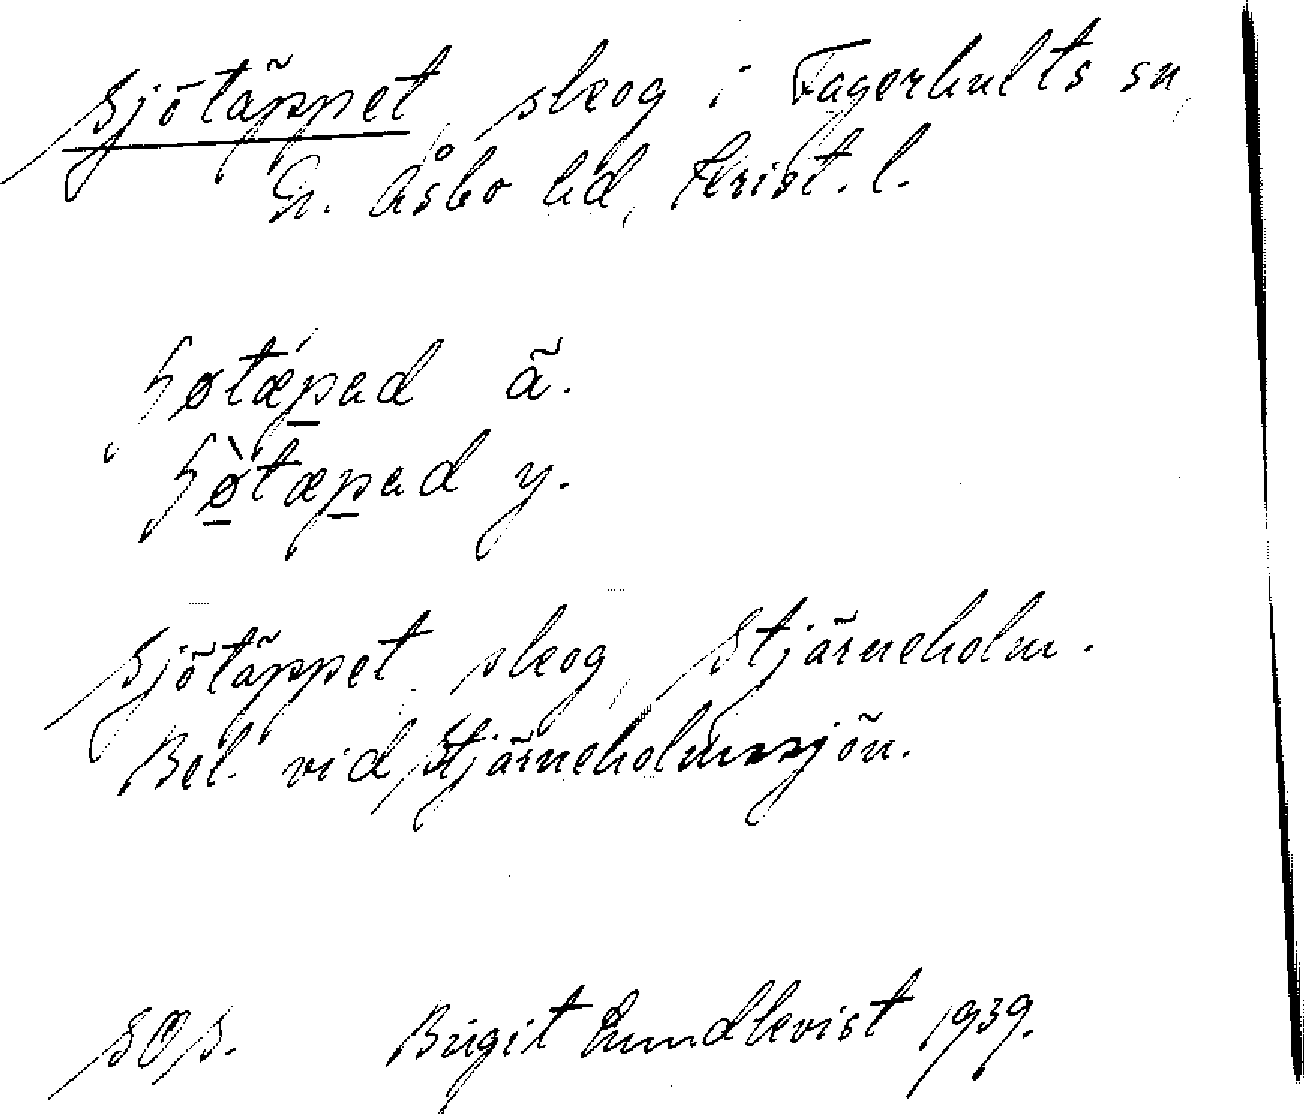 Sjötäppet, skog i Fagerhults sn,
N. Åsbo hd, Krist. l.
ꞩøtǽp̲ad ä.
ꞩø̲̀tæp̲ad y.
Sjötäppet, skog, Stjärneholm.
Bel. vid Stjärneholmssjön.
SOS. Birgit Lundkvist 1939.